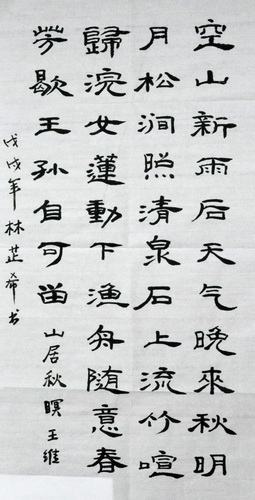 空山新雨后天气晚來秋明
月松涧照清泉石上流竹喧
歸浣女蓮動下渔舟随意春
芳歇王孙自可留山居秋暝王维
戊戌年林芷希书